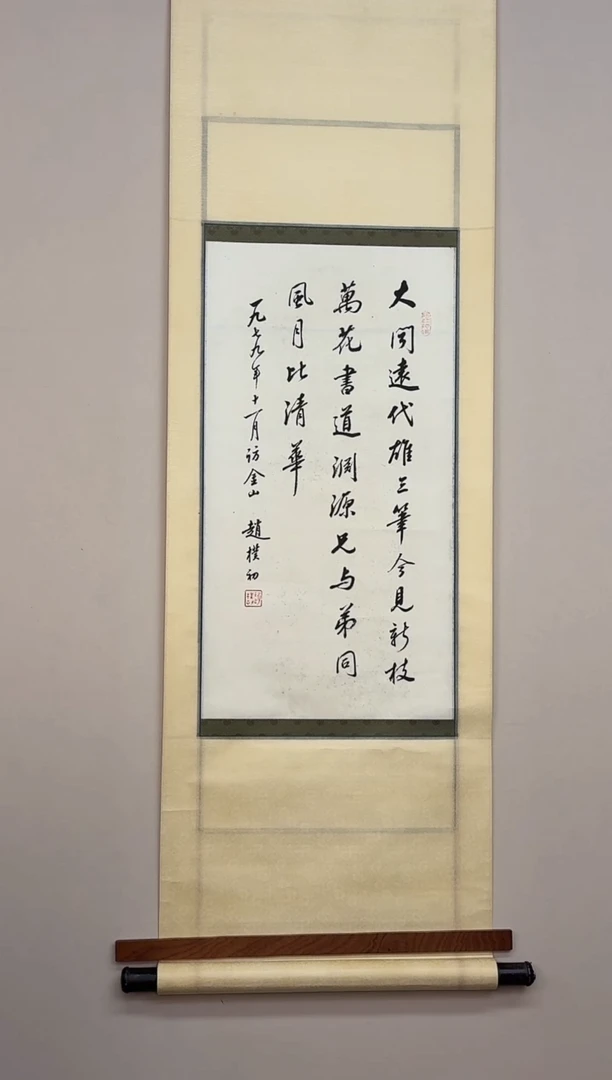 久聞遠代雄三筆今見新枝
萬花書道淵源兄与弟同
風月比清華
一九七九年十一月访金山 趙樸初